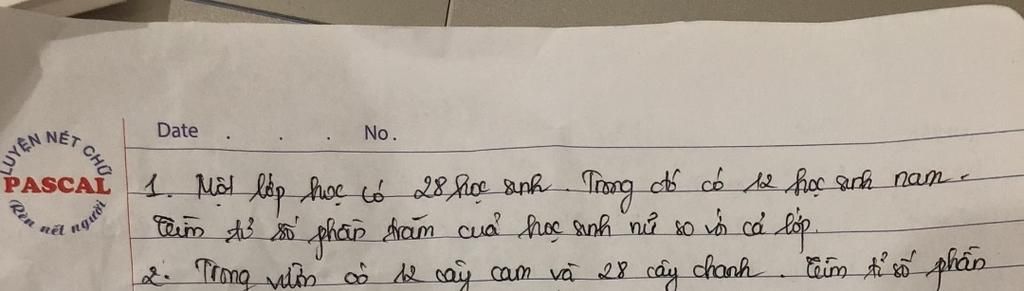 LUYỆN NÉT CHỮ
PASCAL
Rèn nết người
Date . . . No.
1. Một lớp học có 28 học sinh. Trong đó có 12 học sinh nam.
Tìm tỉ số phần trăm cuả học sinh nữ so với cả lớp.
2. Trong vườn có 12 cây cam và 28 cây chanh. Tìm tỉ số phần